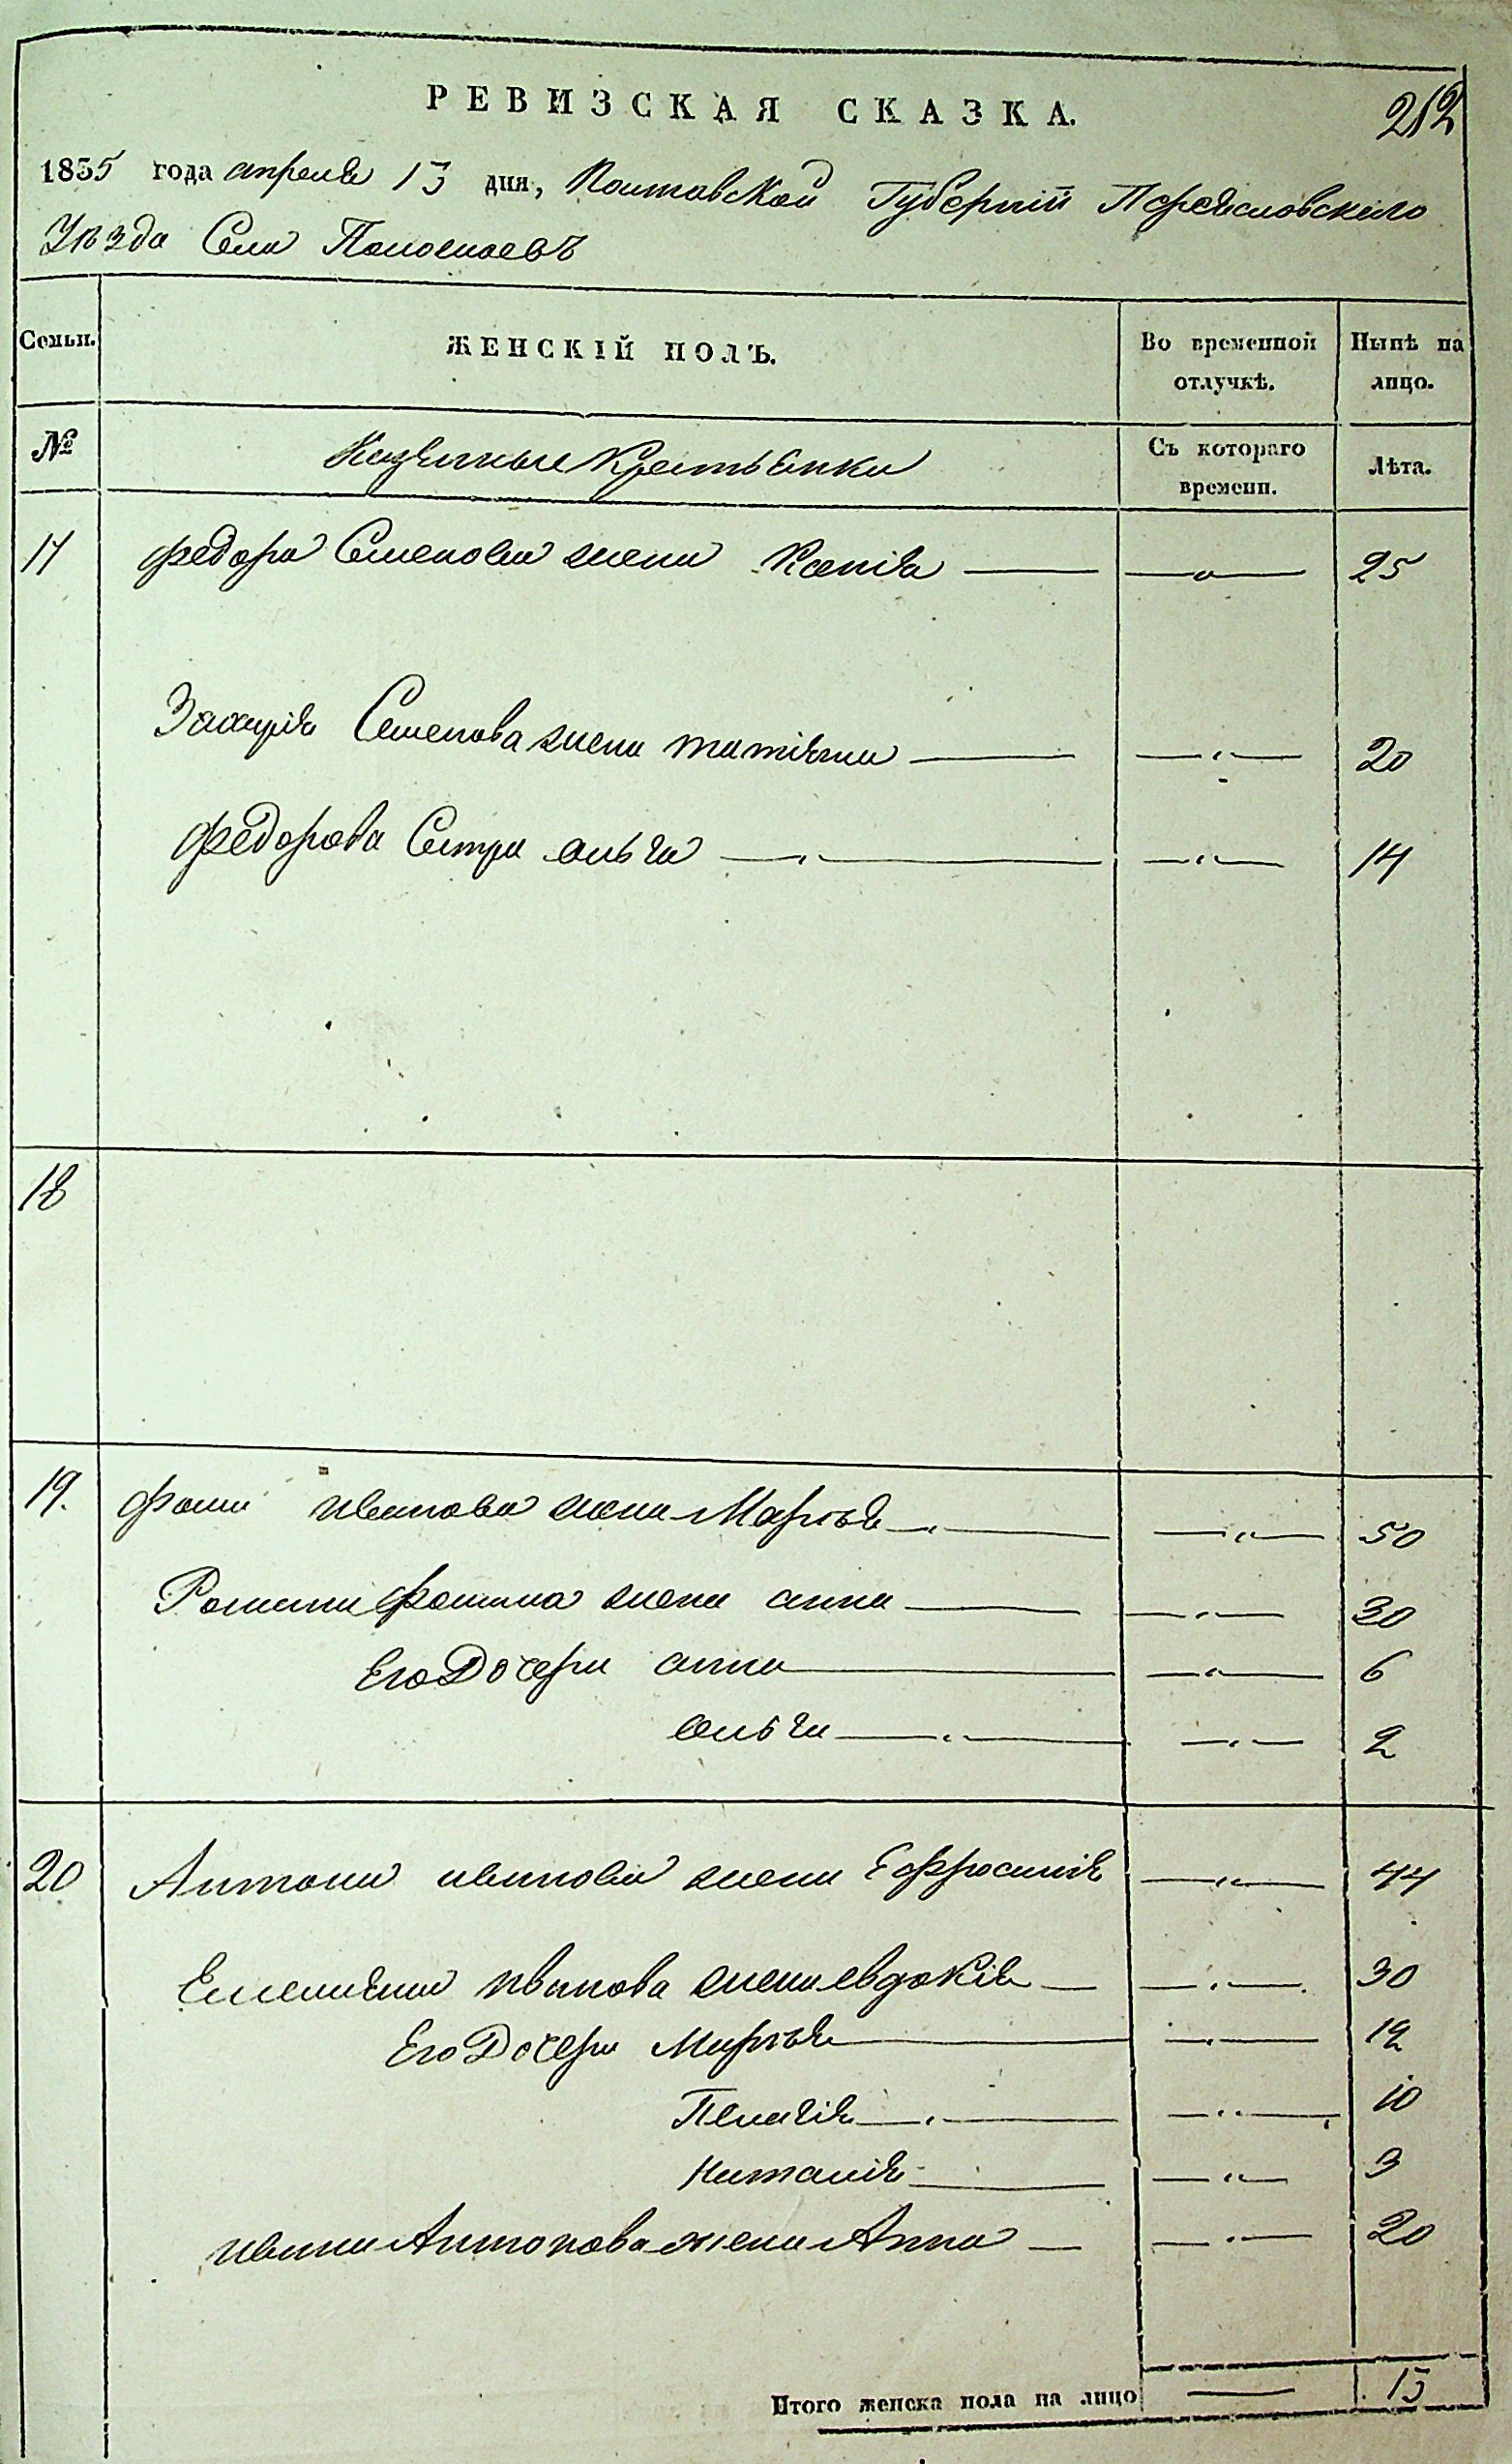 РЕВИЗСКАЯ СКАЗКА.
212
1835 года апреля 13 дня, Полтавской Губернiи Переясловского
Уѣзда Села
Семьи. ЖЕНСКІЙ ПОЛЪ. Во временной отлучкѣ. Нынѣ на лицо.
№ Казенные Крестьянки Съ котораго времени. Лѣта.
17 федора Семенова жена Ксенія — — 25
Захарія Семенова жена татіяна — — „ — 20
федорова Сестра ольга — „ — — „ — 14
18
19. фомы иванова жена Марья — „ — — „ — 50
Романа фомина жена анна — — „ — 30
Его Дочери анна — — „ — 6
ольга — „ — — „ — 2
20 Антона иванова жена Ефросинія — „ — 44
Емелияна иванова жена евдокія — — „ — 30
Его Дочери Марья — — „ — 12
Пелагія — „ — — „ — 10
наталія — — „ — 3
ивана Антонова жена Анна — — „ — 20
Итого женска пола на лицо — 13